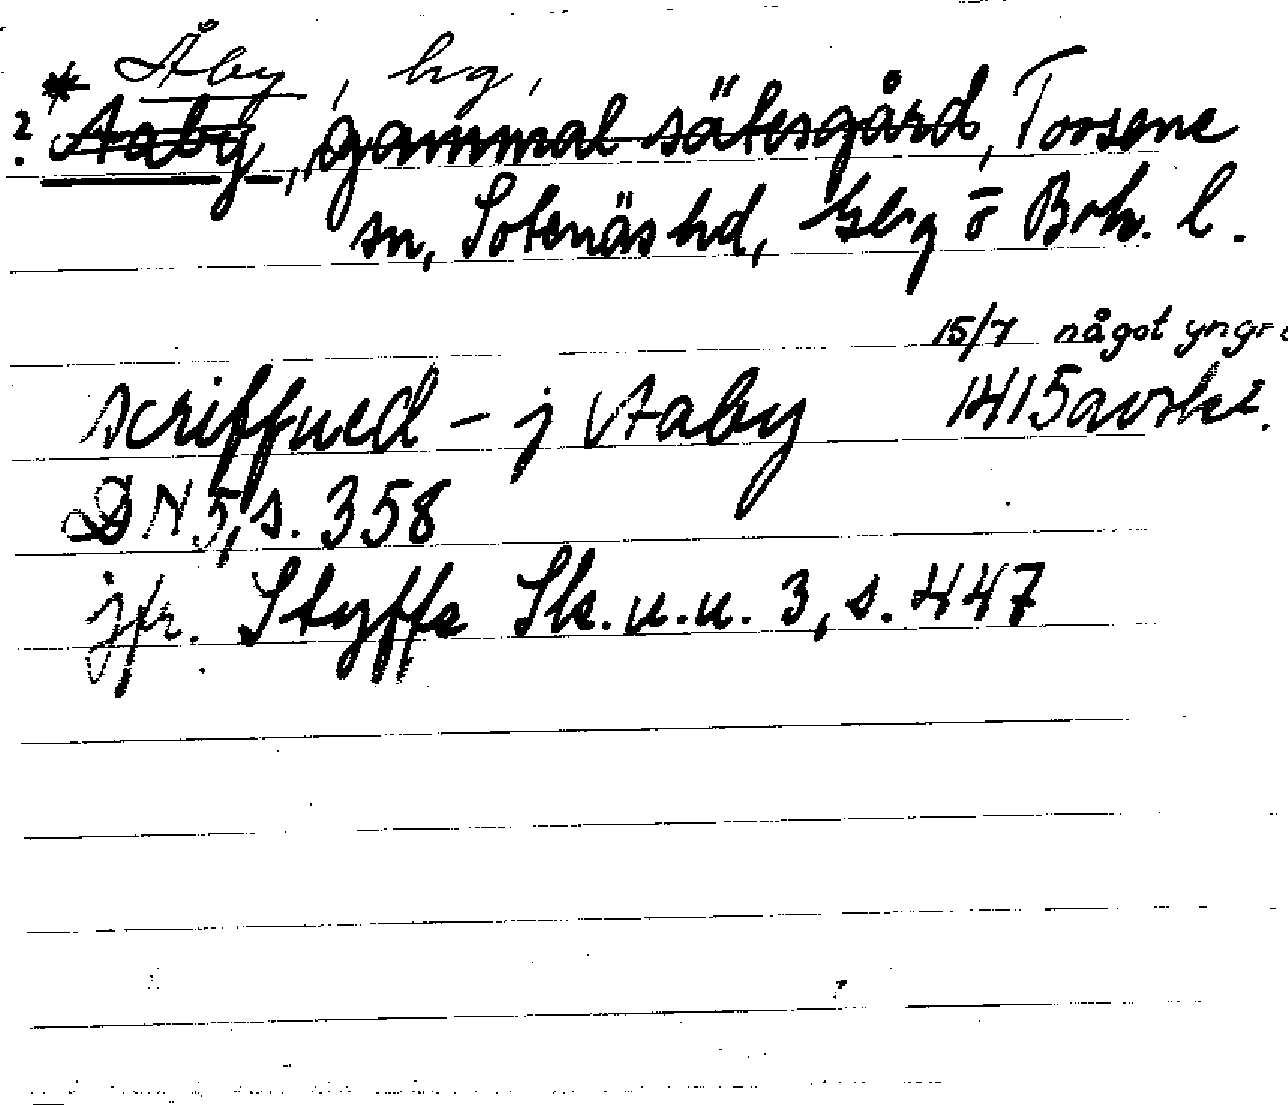 Åby, hg,
?* Aaby, gammal sätesgård, Torsene
sn, Sotenäs hd, Gbg o Boh. l.
15/7 något yngre
scriffued - j Aaby 1415 avskr.
DN 5, s. 358
jfr. Styffe Sk. u. u. 3, s. 447